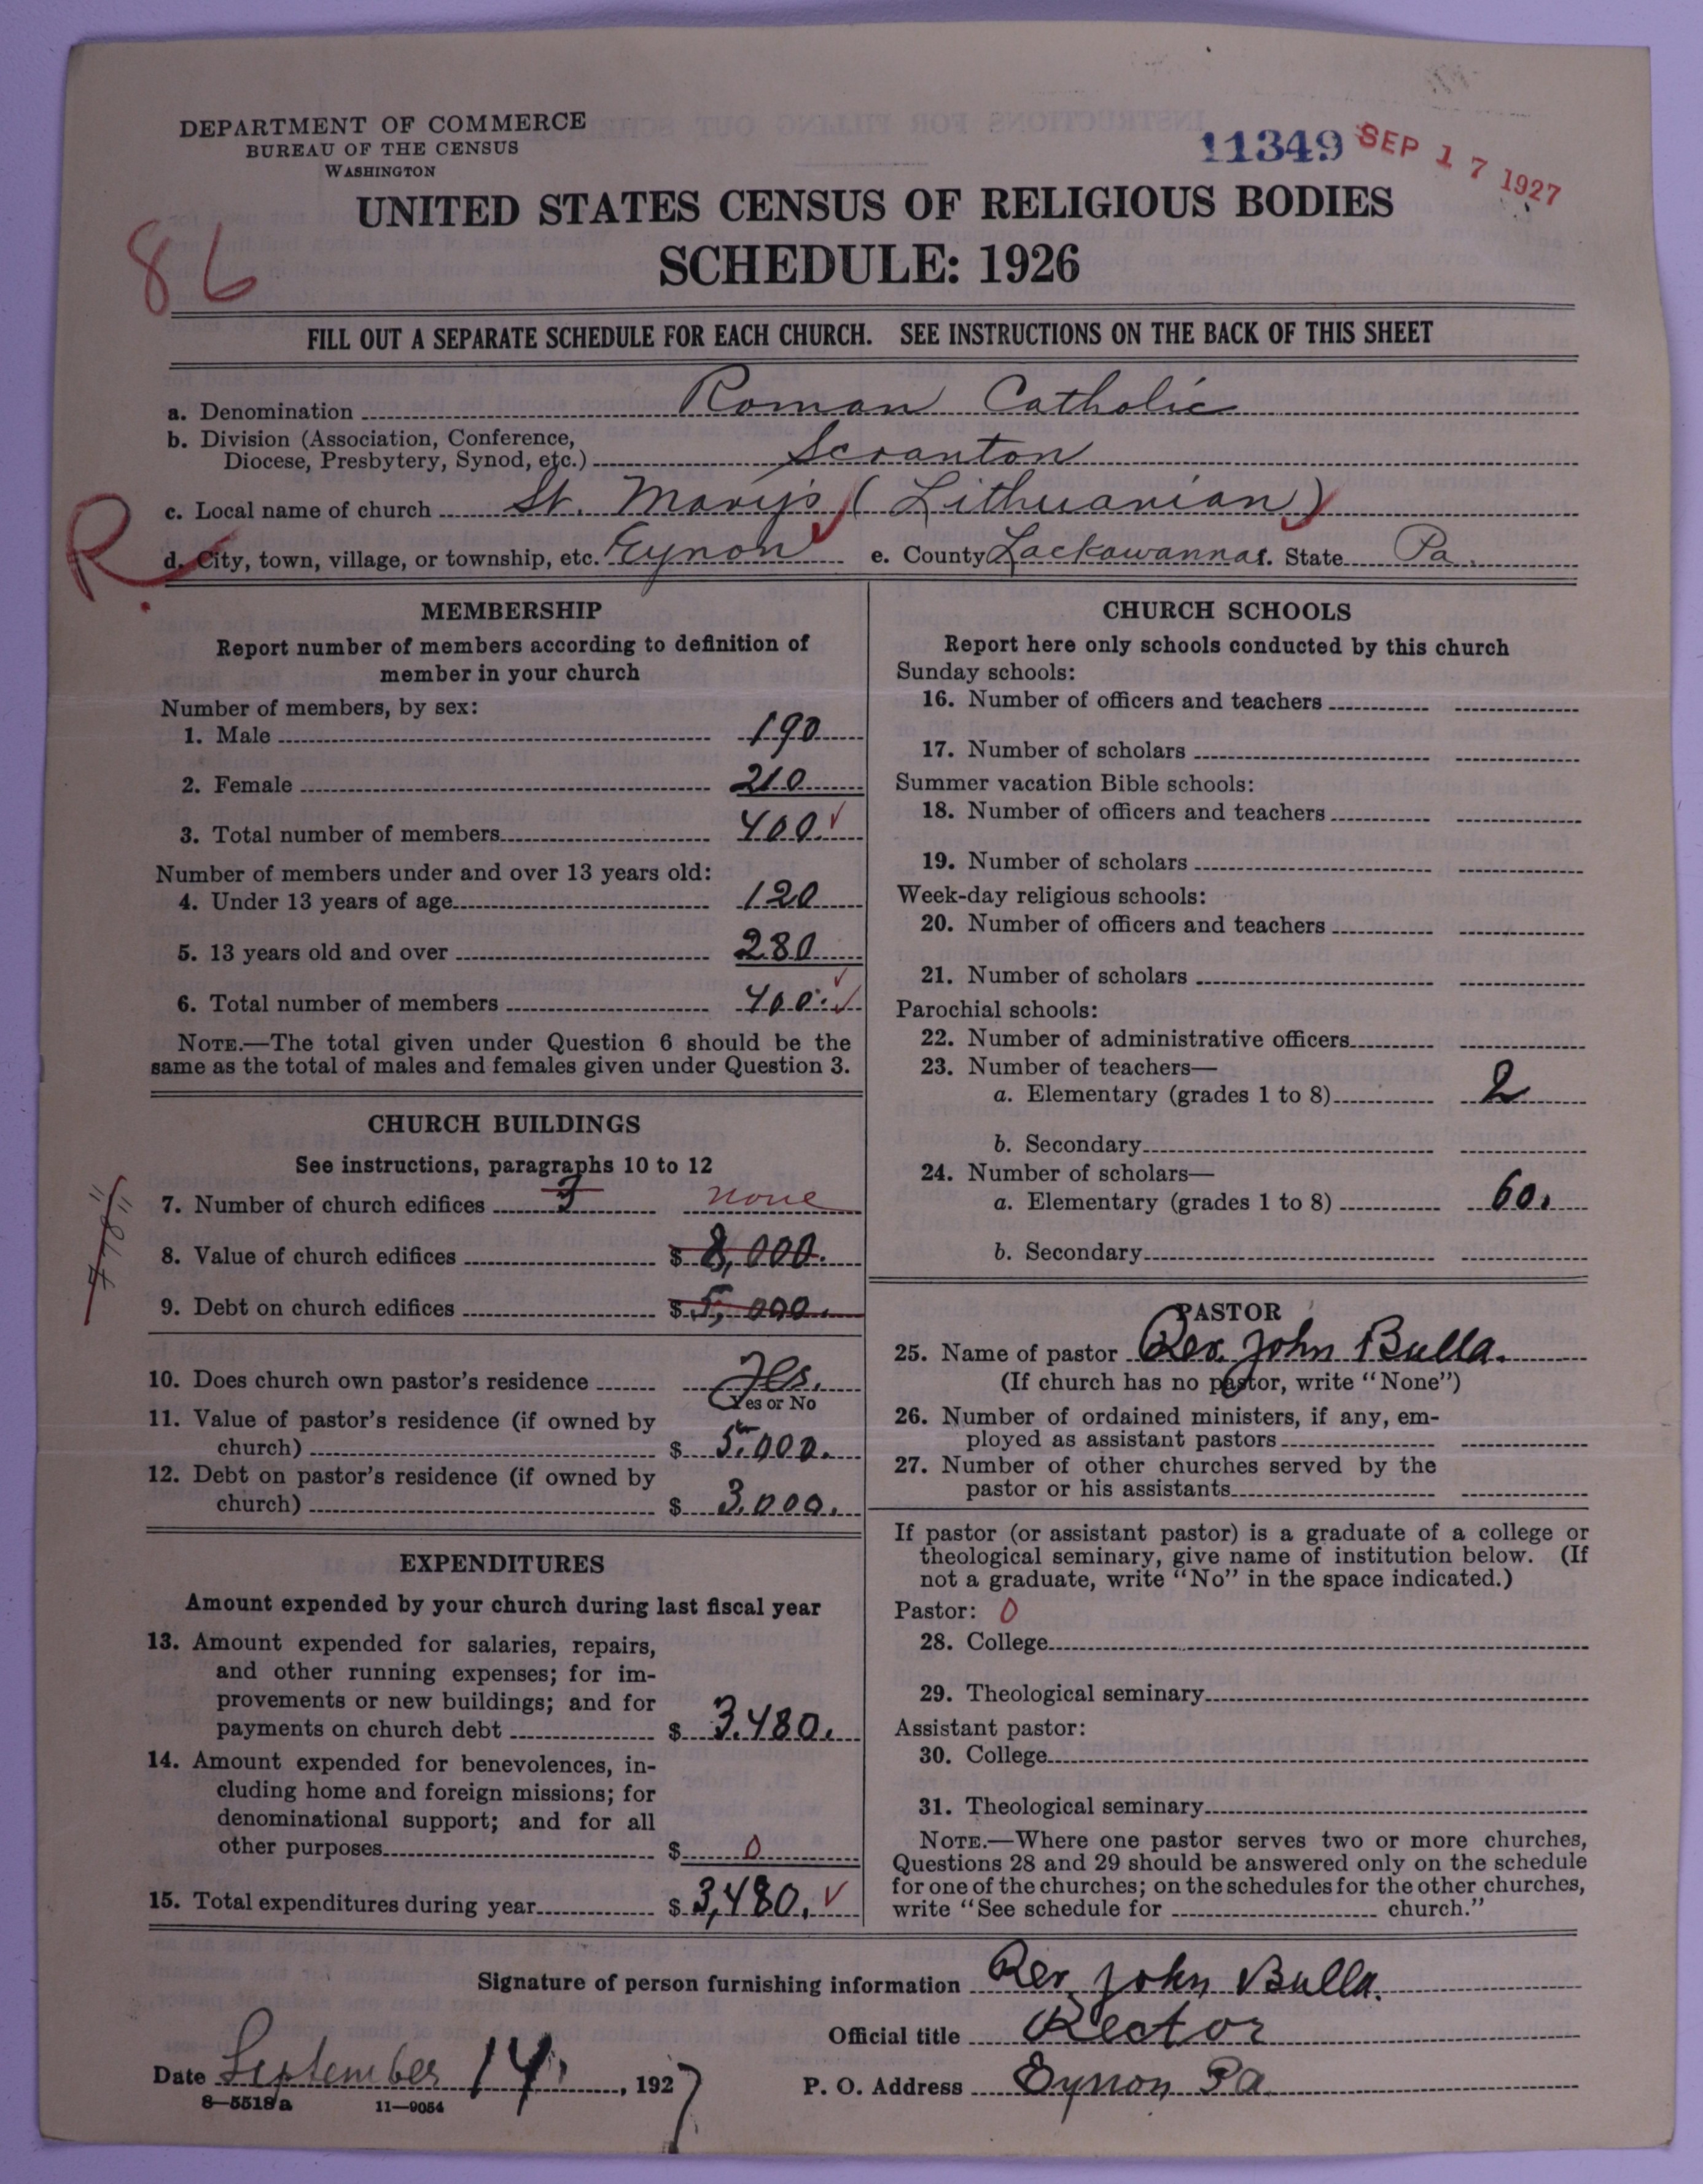 DEPARTMENT OF COMMERCE
BUREAU OF THE CENSUS
WASHINGTON
11349 SEP 17 1927
UNITED STATES CENSUS OF RELIGIOUS BODIES
SCHEDULE: 1926
86
FILL OUT A SEPARATE SCHEDULE FOR EACH CHURCH. SEE INSTRUCTIONS ON THE BACK OF THIS SHEET
a. Denomination Roman Catholic
b. Division (Association, Conference,
Diocese, Presbytery, Synod, etc.) Scranton
c. Local name of church St. Mary's (Lithuanian)
R
d. City, town, village, or township, etc. Eynon e. County Lackawanna f. State Pa.
MEMBERSHIP
Report number of members according to definition of
member in your church
Number of members, by sex:
1. Male 190
2. Female 210
3. Total number of members 400. ✓
Number of members under and over 13 years old:
4. Under 13 years of age 120
5. 13 years old and over 280
6. Total number of members 400. ✓
NOTE.—The total given under Question 6 should be the
same as the total of males and females given under Question 3.
CHURCH BUILDINGS
See instructions, paragraphs 10 to 12
7. Number of church edifices none
8. Value of church edifices $ 8,000.
9. Debt on church edifices $ 5,000.
10. Does church own pastor's residence Yes.
Yes or No
11. Value of pastor's residence (if owned by
church) $ 5.000.
12. Debt on pastor's residence (if owned by
church) $ 3.000.
EXPENDITURES
Amount expended by your church during last fiscal year
13. Amount expended for salaries, repairs,
and other running expenses; for im-
provements or new buildings; and for
payments on church debt $ 3.480.
14. Amount expended for benevolences, in-
cluding home and foreign missions; for
denominational support; and for all
other purposes $ 0
15. Total expenditures during year $ 3,480. ✓
CHURCH SCHOOLS
Report here only schools conducted by this church
Sunday schools:
16. Number of officers and teachers
17. Number of scholars
Summer vacation Bible schools:
18. Number of officers and teachers
19. Number of scholars
Week-day religious schools:
20. Number of officers and teachers
21. Number of scholars
Parochial schools:
22. Number of administrative officers
23. Number of teachers—
a. Elementary (grades 1 to 8) 2
b. Secondary
24. Number of scholars—
a. Elementary (grades 1 to 8) 60.
b. Secondary
PASTOR
25. Name of pastor Rev. John Bulla.
(If church has no pastor, write "None")
26. Number of ordained ministers, if any, em-
ployed as assistant pastors
27. Number of other churches served by the
pastor or his assistants
If pastor (or assistant pastor) is a graduate of a college or
theological seminary, give name of institution below. (If
not a graduate, write "No" in the space indicated.)
Pastor: 0
28. College
29. Theological seminary
Assistant pastor:
30. College
31. Theological seminary
NOTE.—Where one pastor serves two or more churches,
Questions 28 and 29 should be answered only on the schedule
for one of the churches; on the schedules for the other churches,
write "See schedule for church."
Signature of person furnishing information Rev John Bulla.
Official title Rector
Date September 14, 1927
P. O. Address Eynon Pa
8—5518a 11—9054